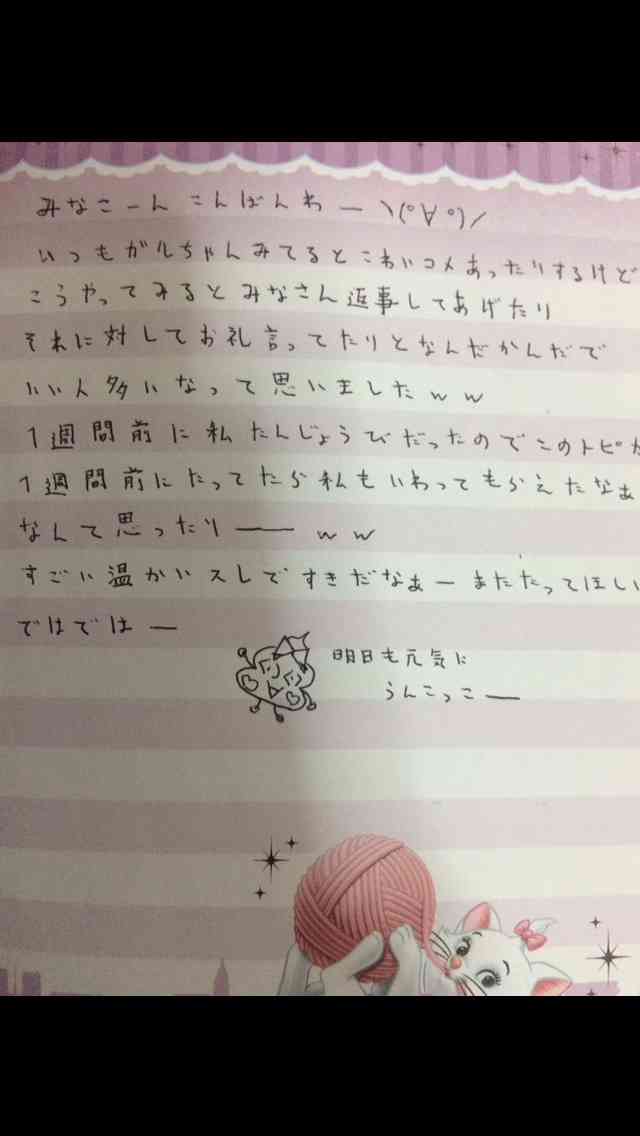 みなさーん こんばんわー ヽ(°∀°)ノ
いつもガルちゃんみてるとこわいコメあったりするけど
こうやってみるとみなさん返事してあげたり
それに対してお礼言ってたりとなんだかんだで
いい人多いなって思いましたww
1週間前に私たんじょうびだったのでこのトピが
1週間前にたってたら私もいわってもらえたなぁ
なんて思ったりーww
すごい温かいスレですきだなぁーまたたってほしい
ではではー
明日も元気に
うんこっこー